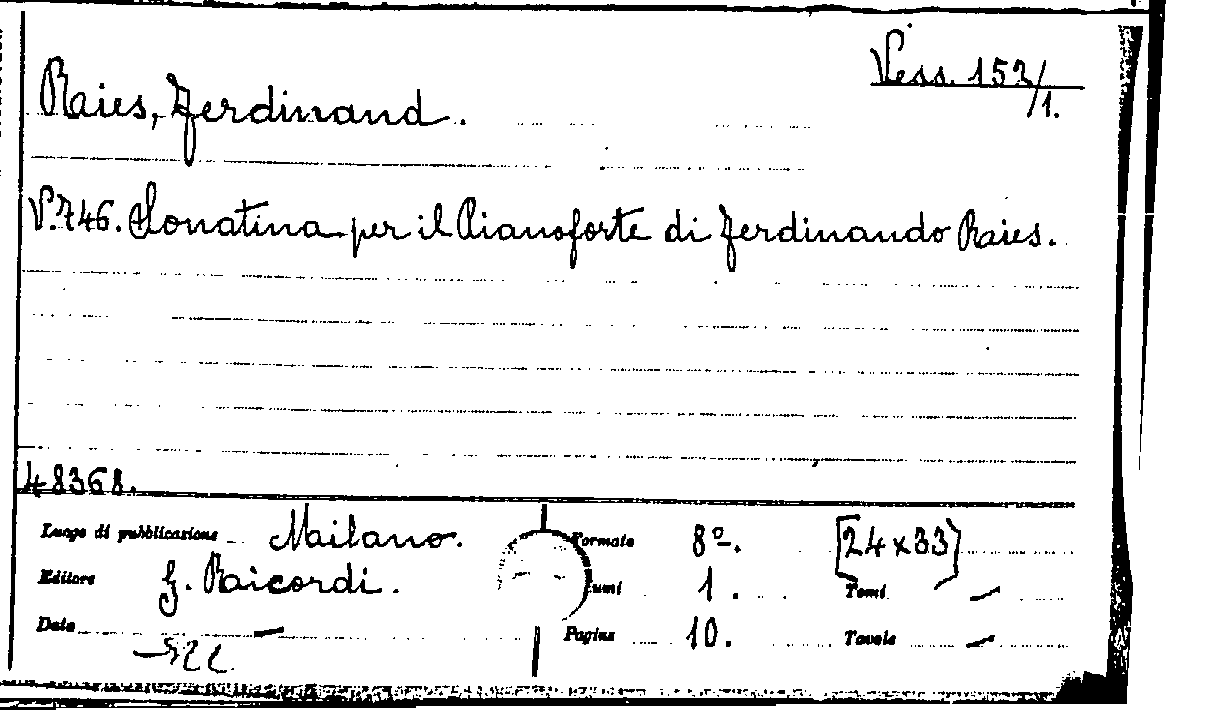 Vess. 153/1.
Raies, Ferdinand.
V.746. Sonatina per il Pianoforte di Ferdinando Raies.
48368.
Luogo di pubblicazione Milano. Formato 8º. [24x33]
Editore G. Raicordi. umi 1. Tomi —
Data — Pagine 10. Tavole —